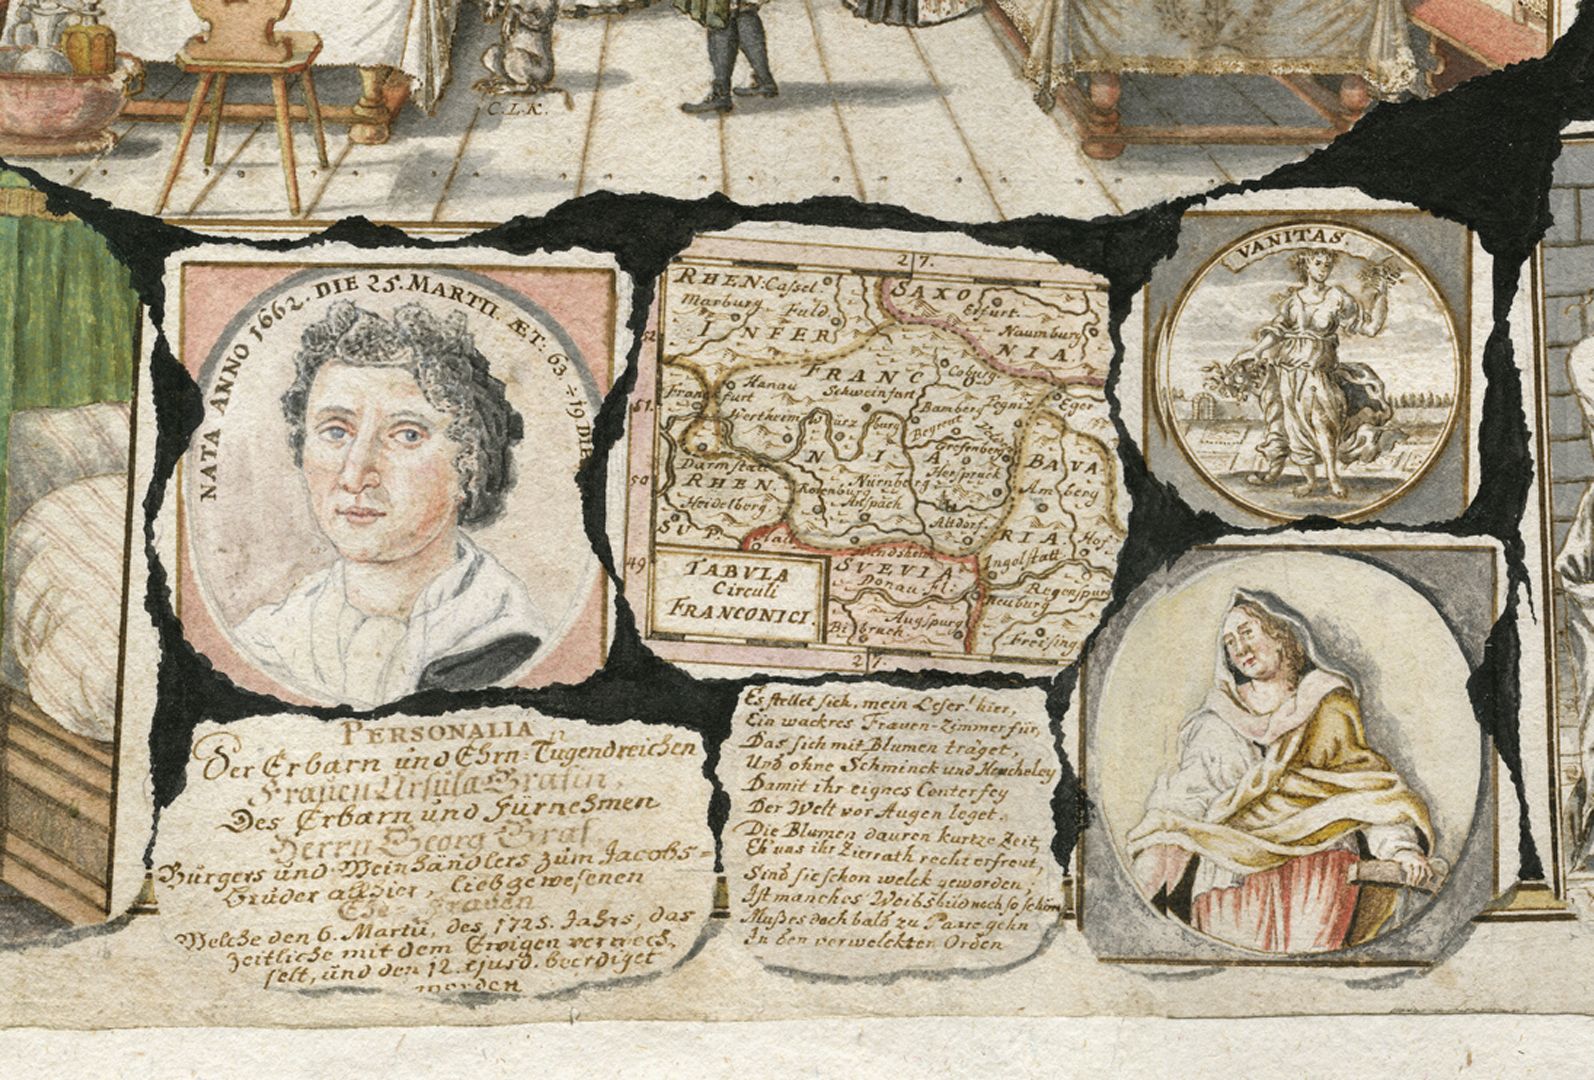 C. L. K.
NATA ANNO 1662. DIE 25. MARTII. ÆT: 63 ÷ 19 DIE
27.
RHEN: Cassel
SAXO
Marburg
Fuld
Erfurt.
INFER
Naumburg
NIA
52
FRANC
Coburg
Hanau
Schweinfurt
Francfurt
51.
Bamberg
Pegniz
Eger
Wertheim
Würzburg
Beyreut
NIA
Grefenberg
BAVA
Darmstatt
Herspruck
RHEN.
50
Nürnberg
Amberg
Rotenburg
Anspach
Heidelberg.
Altdorf.
SUP.
RIA
Hof
Hall
Windsheim
49
Ingolstatt
SVEVIA
TABVLA
Circuli
FRANCONICI.
Donau. Fl.
Regenspurg
Neuburg
Augspurg
Bibruch
Freising.
27.
VANITAS.
PERSONALIA
Der Erbarn und Ehrn-Tugendreichen
Frauen Ursula Grafin,
Des Erbarn und Fürnehmen
Herrn Georg Graf,
Bürgers und Weinhändlers zum Jacobs-
bruder allhier, Liebgewesenen
Ehe-Frauen
Welche den 6. Martii, des 1725. Jahrs, das
Zeitliche mit dem Ewigen verwech-
selt, und den 12. ejusd. beerdiget
worden
Es stellet sich, mein Leser! hier,
Ein wackres Frauen-Zimmer für,
Das sich mit Blumen träget,
Und ohne Schminck und Heucheley
Damit ihr eignes Conterfey
Der Welt vor Augen leget.
Die Blumen dauren kurtze Zeit,
Eh uns ihr Zierrath recht erfreut,
Sind sie schon welck geworden,
Ist manches Weibsbild noch so schön
Muß es doch bald zu Paare gehn
In den verwelckten Orden